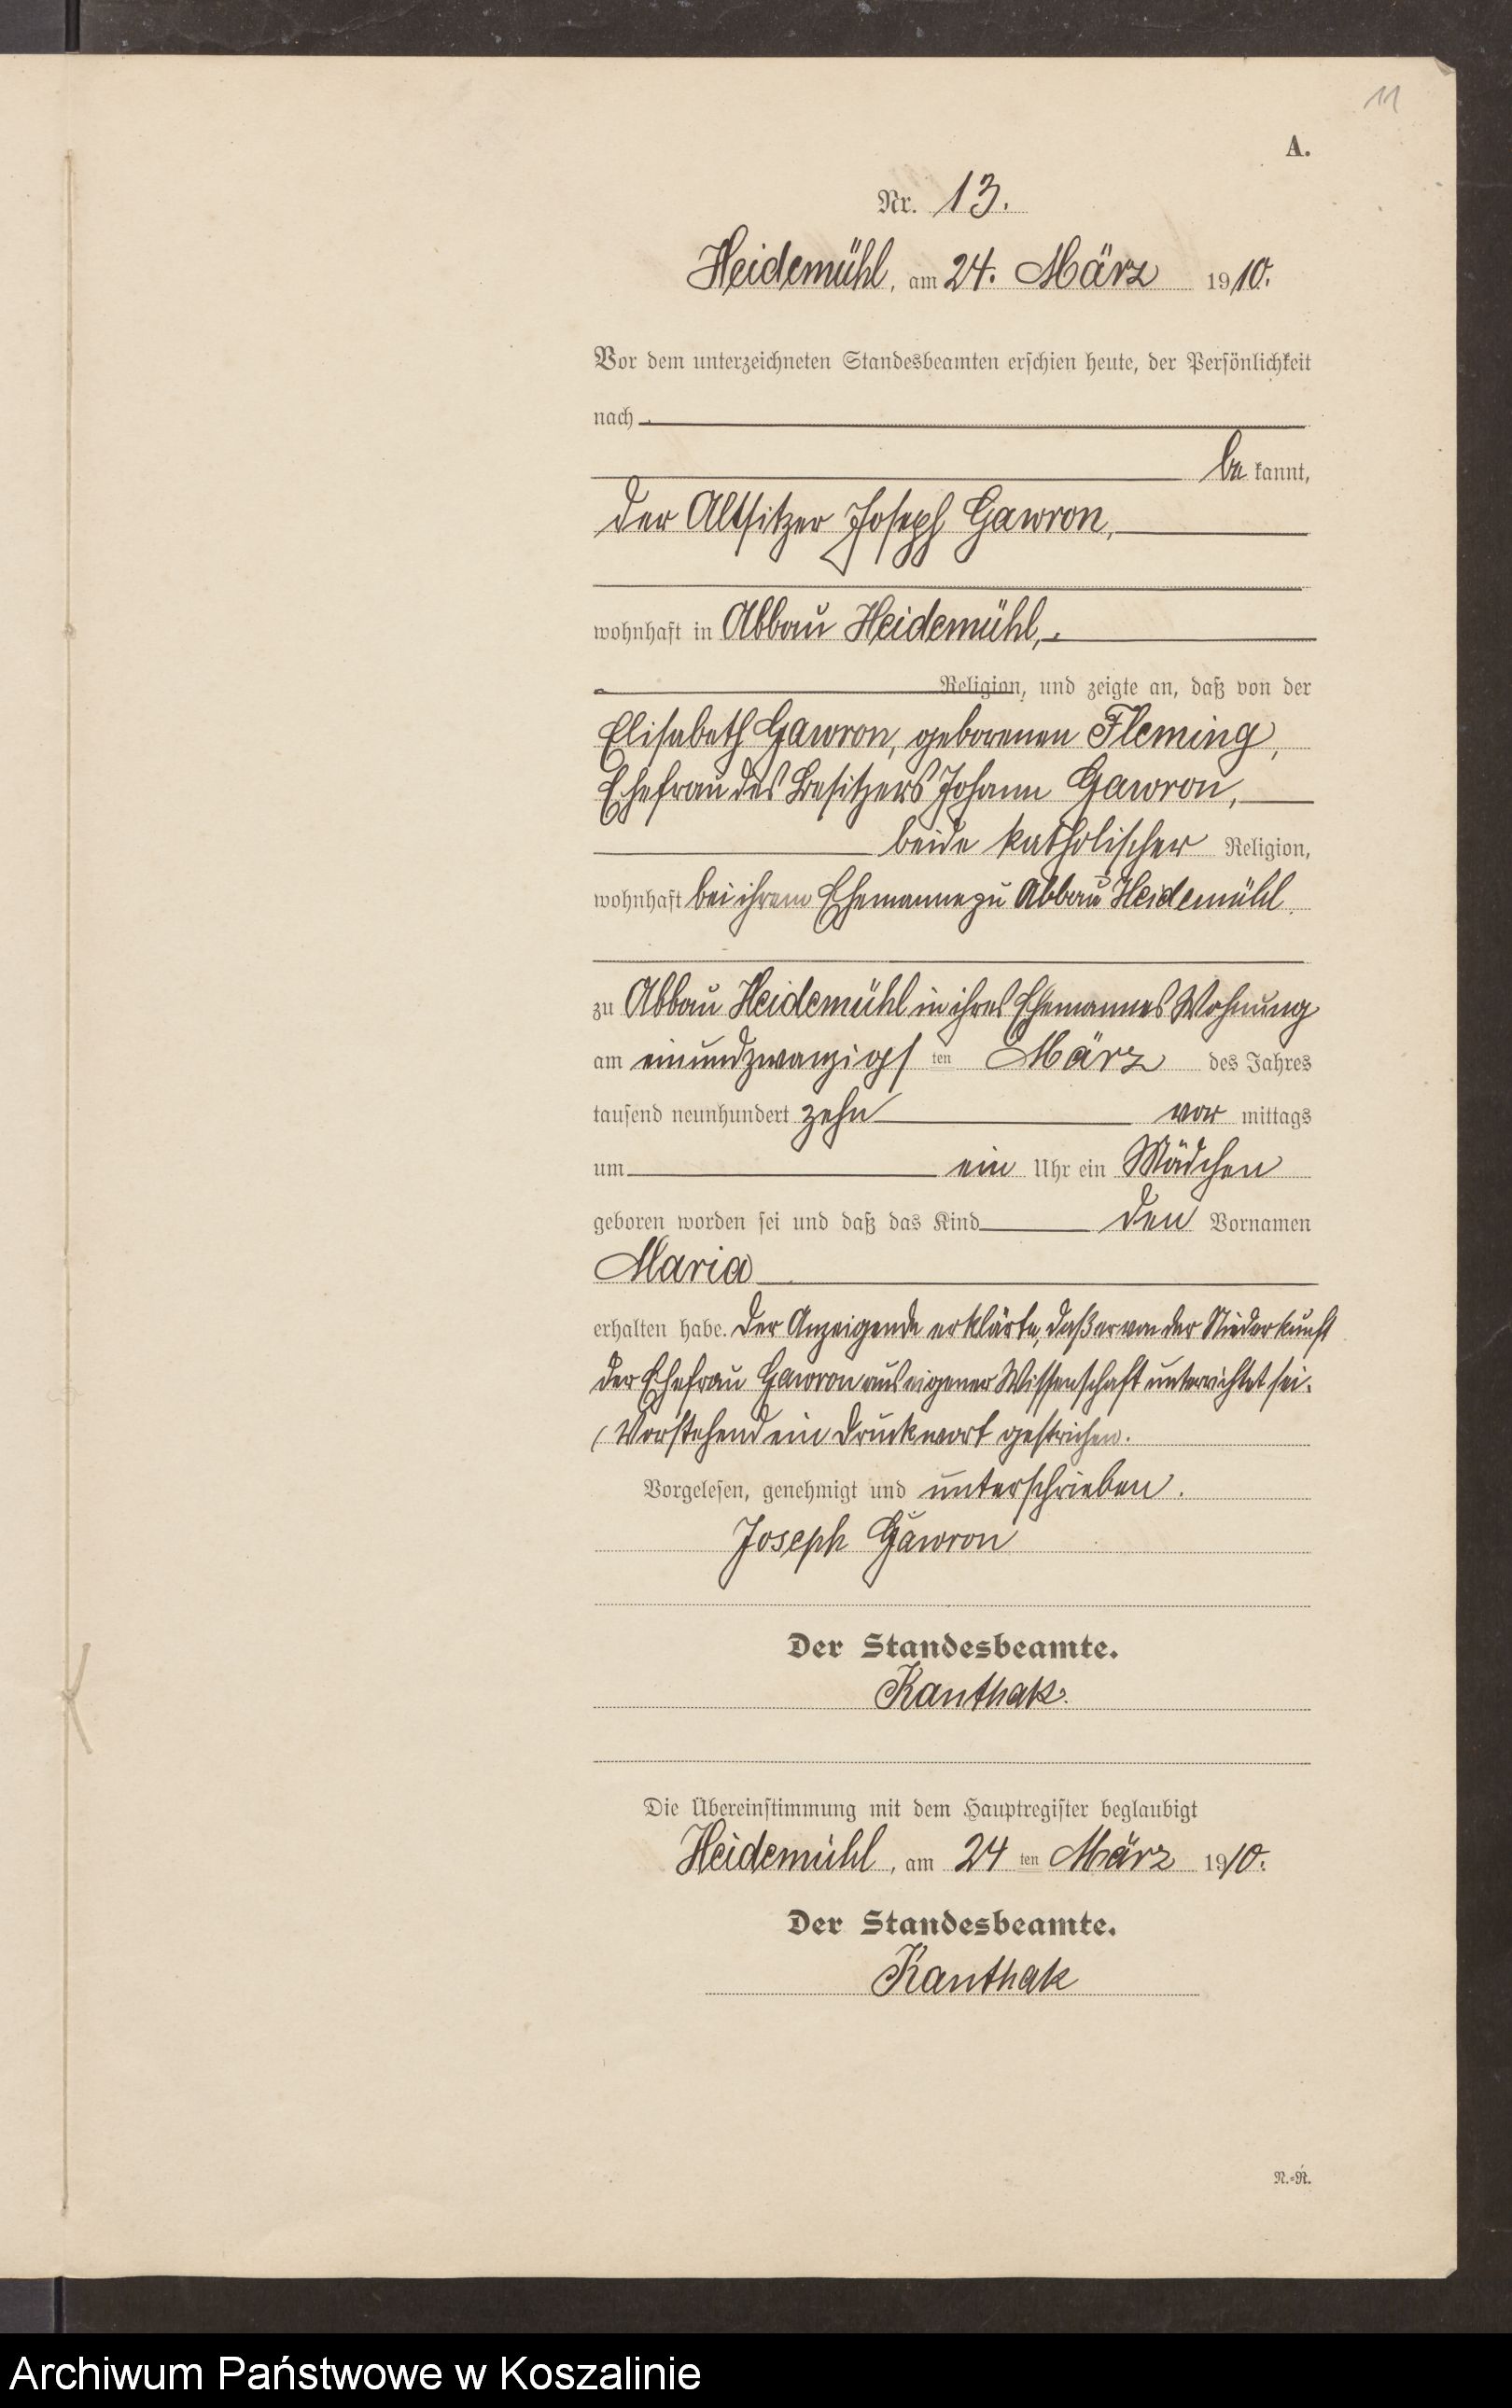 11
A.
Nr. 13.
Heidemühl, am 24. März 1910.
Vor dem unterzeichneten Standesbeamten erschien heute, der Persönlichkeit
nach
be kannt,
der Altsitzer Joseph Gawron,
wohnhaft in Abbau Heidemühl,
Religion, und zeigte an, daß von der
Elisabeth Gawron, geborenen Fleming,
Ehefrau des Besitzers Johann Gawron,
beide katholischer Religion,
wohnhaft bei ihrem Ehemanne zu Abbau Heidemühl
zu Abbau Heidemühl in ihres Ehemannes Wohnung
am einundzwanzigsten März des Jahres
tausend neunhundert zehn vor mittags
um ein Uhr ein Mädchen
geboren worden sei und daß das Kind den Vornamen
Maria
erhalten habe. Der Anzeigende erklärte, daß er von der Niederkunft
der Ehefrau Gawron aus eigener Wissenschaft unterrichtet sei.
(Vorstehend ein Druckwort gestrichen.
Vorgelesen, genehmigt und unterschrieben.
Joseph Gawron
Der Standesbeamte.
Kanthak.
Die Übereinstimmung mit dem Hauptregister beglaubigt
Heidemühl, am 24 ten März 1910.
Der Standesbeamte.
Kanthak
N.-R.
Archiwum Państwowe w Koszalinie